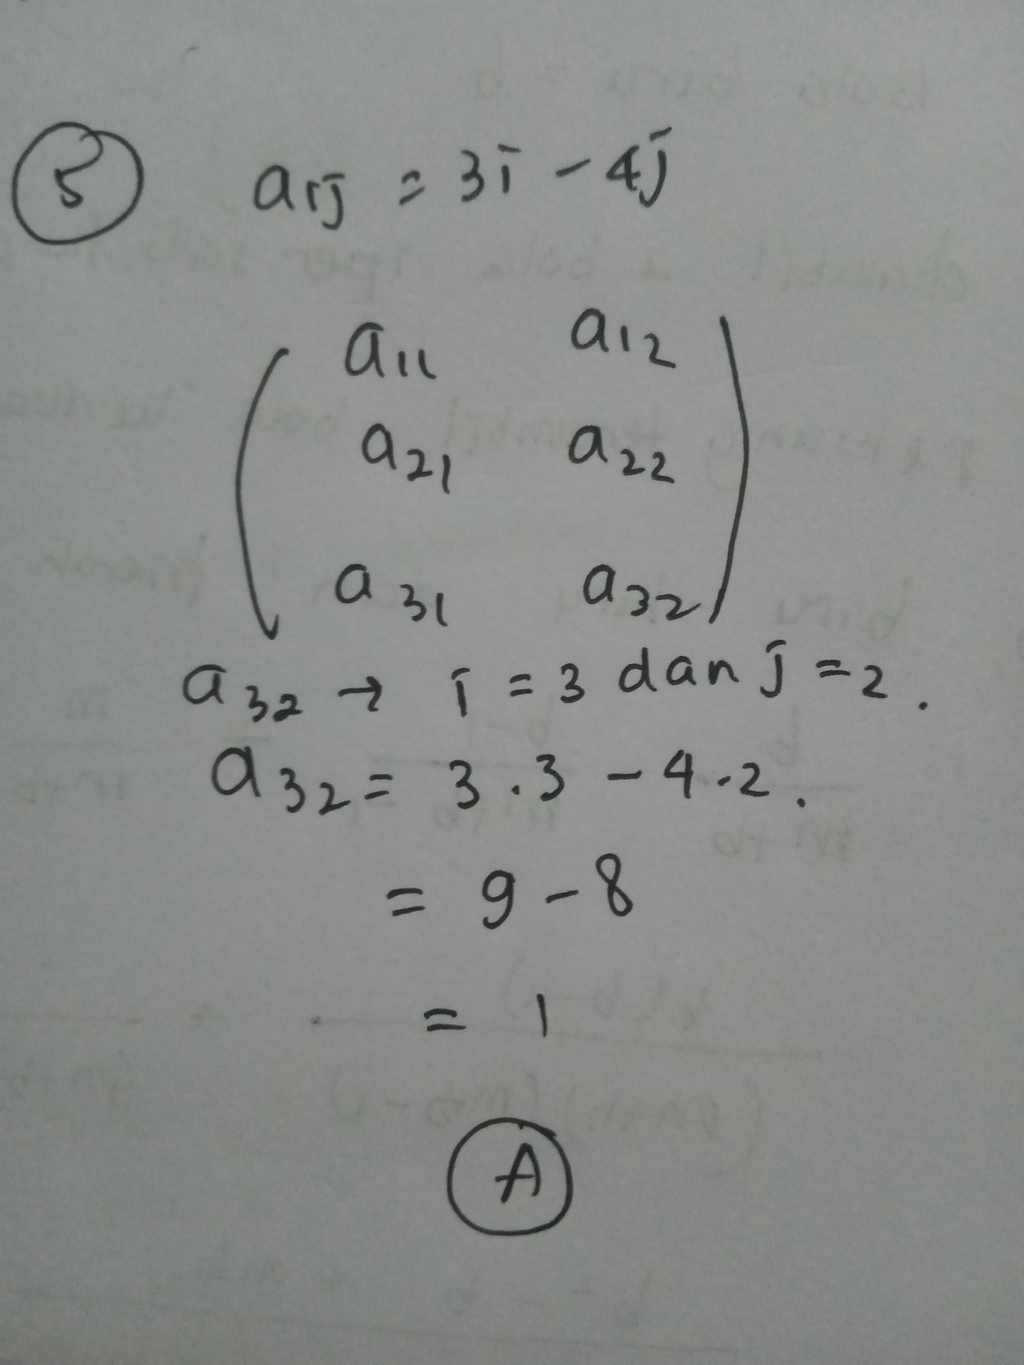 5 aij = 3i - 4j
a11 a12
a21 a22
a31 a32
a32 → i = 3 dan j = 2.
a32 = 3 . 3 - 4 . 2 .
= 9 - 8
= 1
A